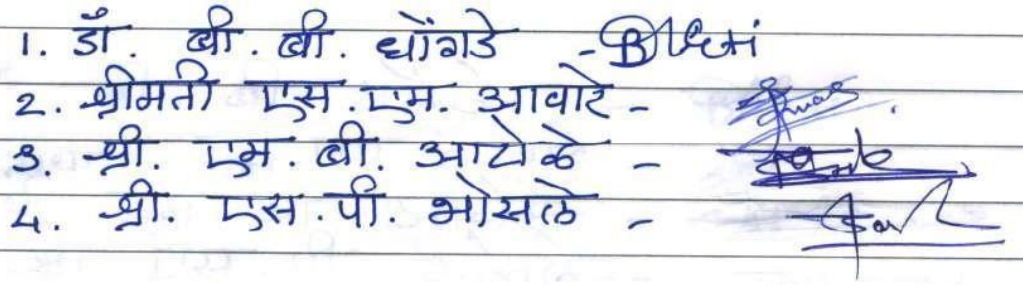 1. डॉ. बी. बी. धोंगडे -
2. श्रीमती एस. एम. आवारे -
3. श्री. एम. बी. आटोळे -
4. श्री. एस. पी. भोसले -